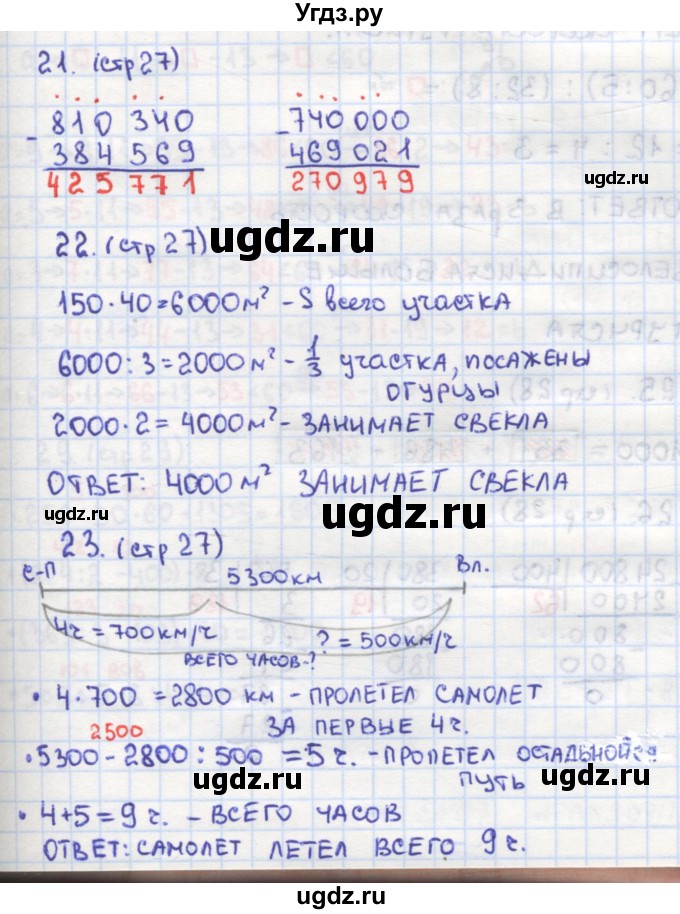 Угдз.ру
21. (стр 27)
- 810 340
384 569
425 771
- 740 000
469 021
270 979
ugdz.ru
22. (стр 27)
ugdz.ru
150 · 40 = 6000 м² - S всего участка
6000 : 3 = 2000 м² - 1/3 участка, посажены
огурцы
2000 · 2 = 4000 м² - ЗАНИМАЕТ СВЕКЛА
ОТВЕТ: 4000 м² ЗАНИМАЕТ СВЕКЛА
ugdz.ru
ugdz.ru
23. (стр 27)
С-П 5300 км Вл.
4ч = 700 км/ч ? = 500 км/ч
ВСЕГО ЧАСОВ-?
ugdz.ru
• 4 · 700 = 2800 км - ПРОЛЕТЕЛ САМОЛЕТ
ЗА ПЕРВЫЕ 4 ч.
2500
• 5300 - 2800 : 500 = 5 ч. - ПРОЛЕТЕЛ ОСТАЛЬНОЙ
ПУТЬ
ugdz.ru
ugdz.ru
• 4 + 5 = 9 ч. - ВСЕГО ЧАСОВ
ОТВЕТ: САМОЛЕТ ЛЕТЕЛ ВСЕГО 9 ч.
ugdz.ru